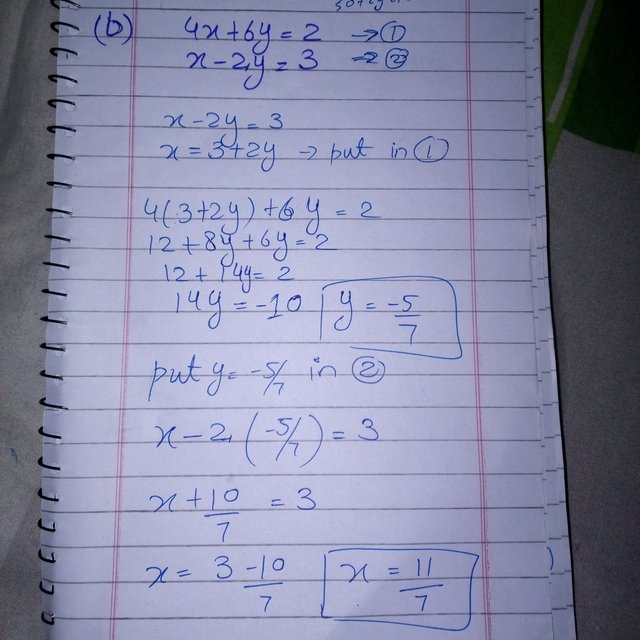 (b) 4x+6y=2 →①
x-2y=3 →②
x-2y=3
x=3+2y → put in ①
4(3+2y)+6y=2
12+8y+6y=2
12+14y=2
14y=-10 y=-5/7
put y=-5/7 in ②
x-2(-5/7)=3
x+10/7=3
x=3-10/7 x=11/7